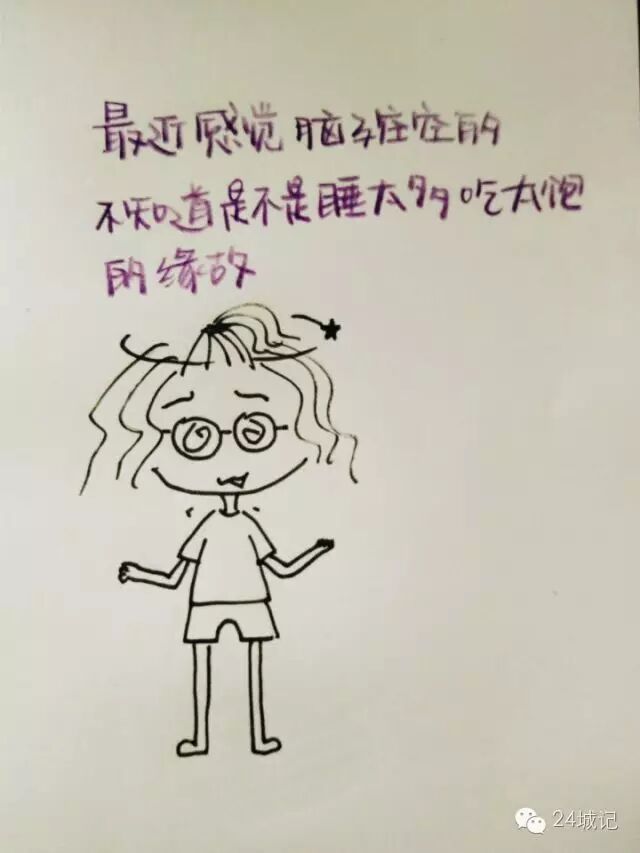 最近感觉脑子空空的
不知道是不是睡太多吃太饱
的缘故
24城记